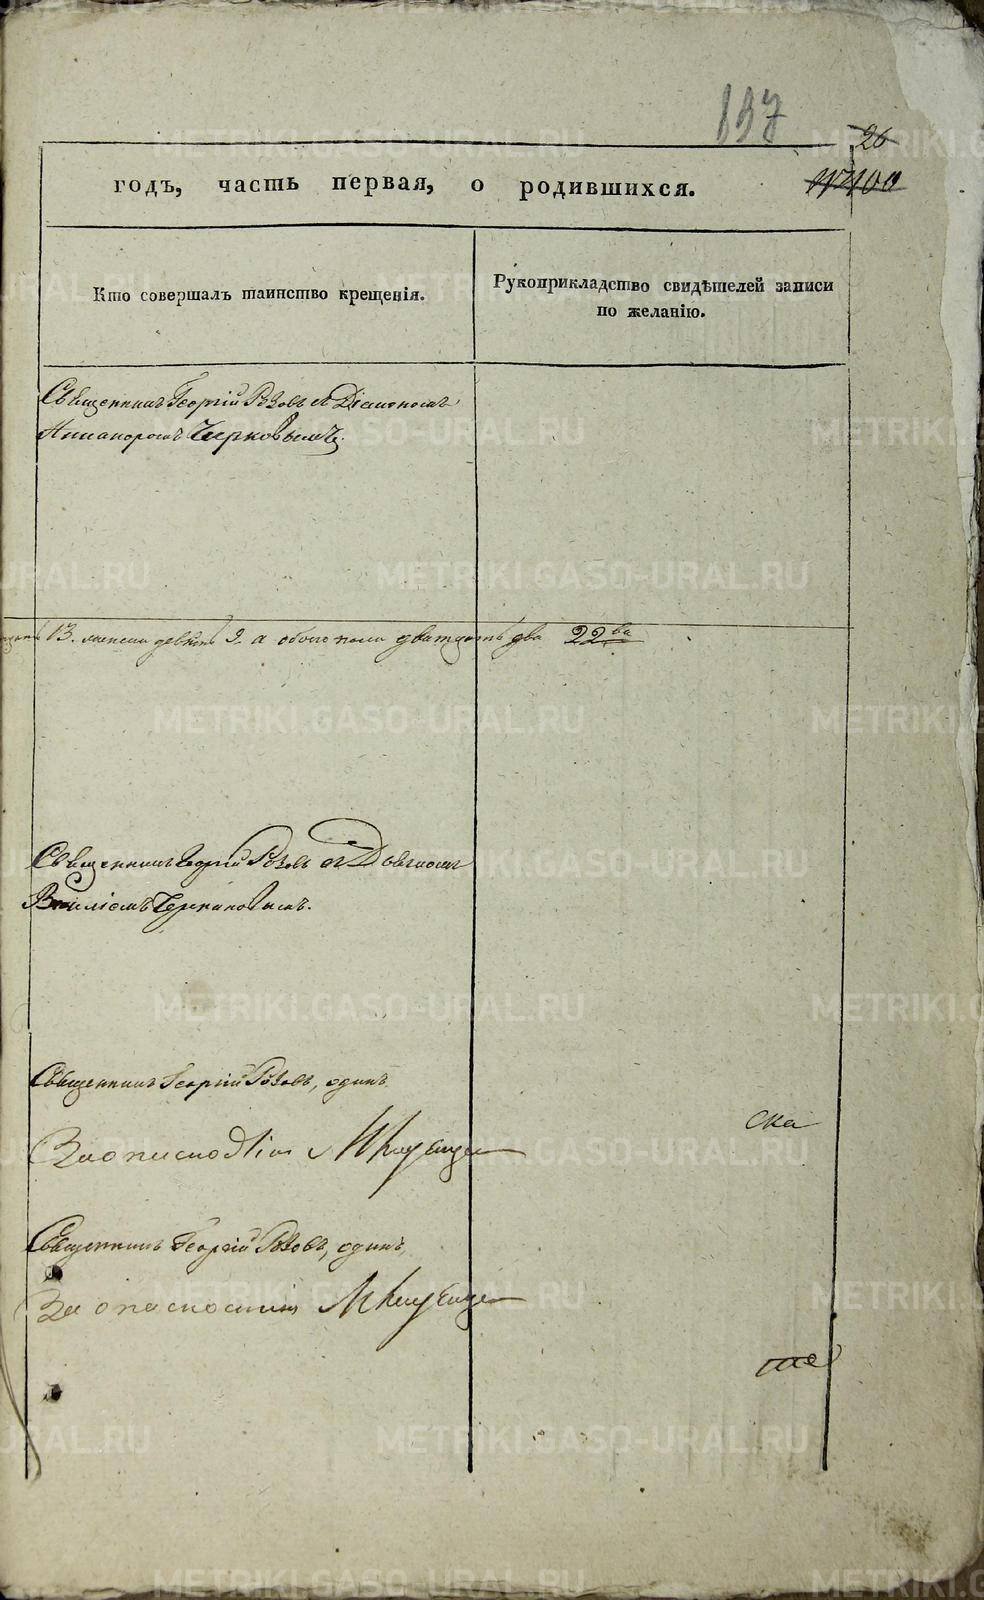 137
26
годъ, часть первая, о родившихся.
№100
Кто совершалъ таинство крещенія.
Рукоприкладство свидѣтелей записи
по желанію.
Священникъ Георгій Розовъ съ Діакономъ
Никаноромъ
13. женска девять 9. а обоего пола двадцать два 22ва
Священникъ Георгій Розовъ съ Дьячкомъ
Священникъ Георгій Розовъ, одинъ
ска
За опасностію
Священникъ Георгій Розовъ, одинъ
За опасностію
METRIKI.GASO-URAL.RU